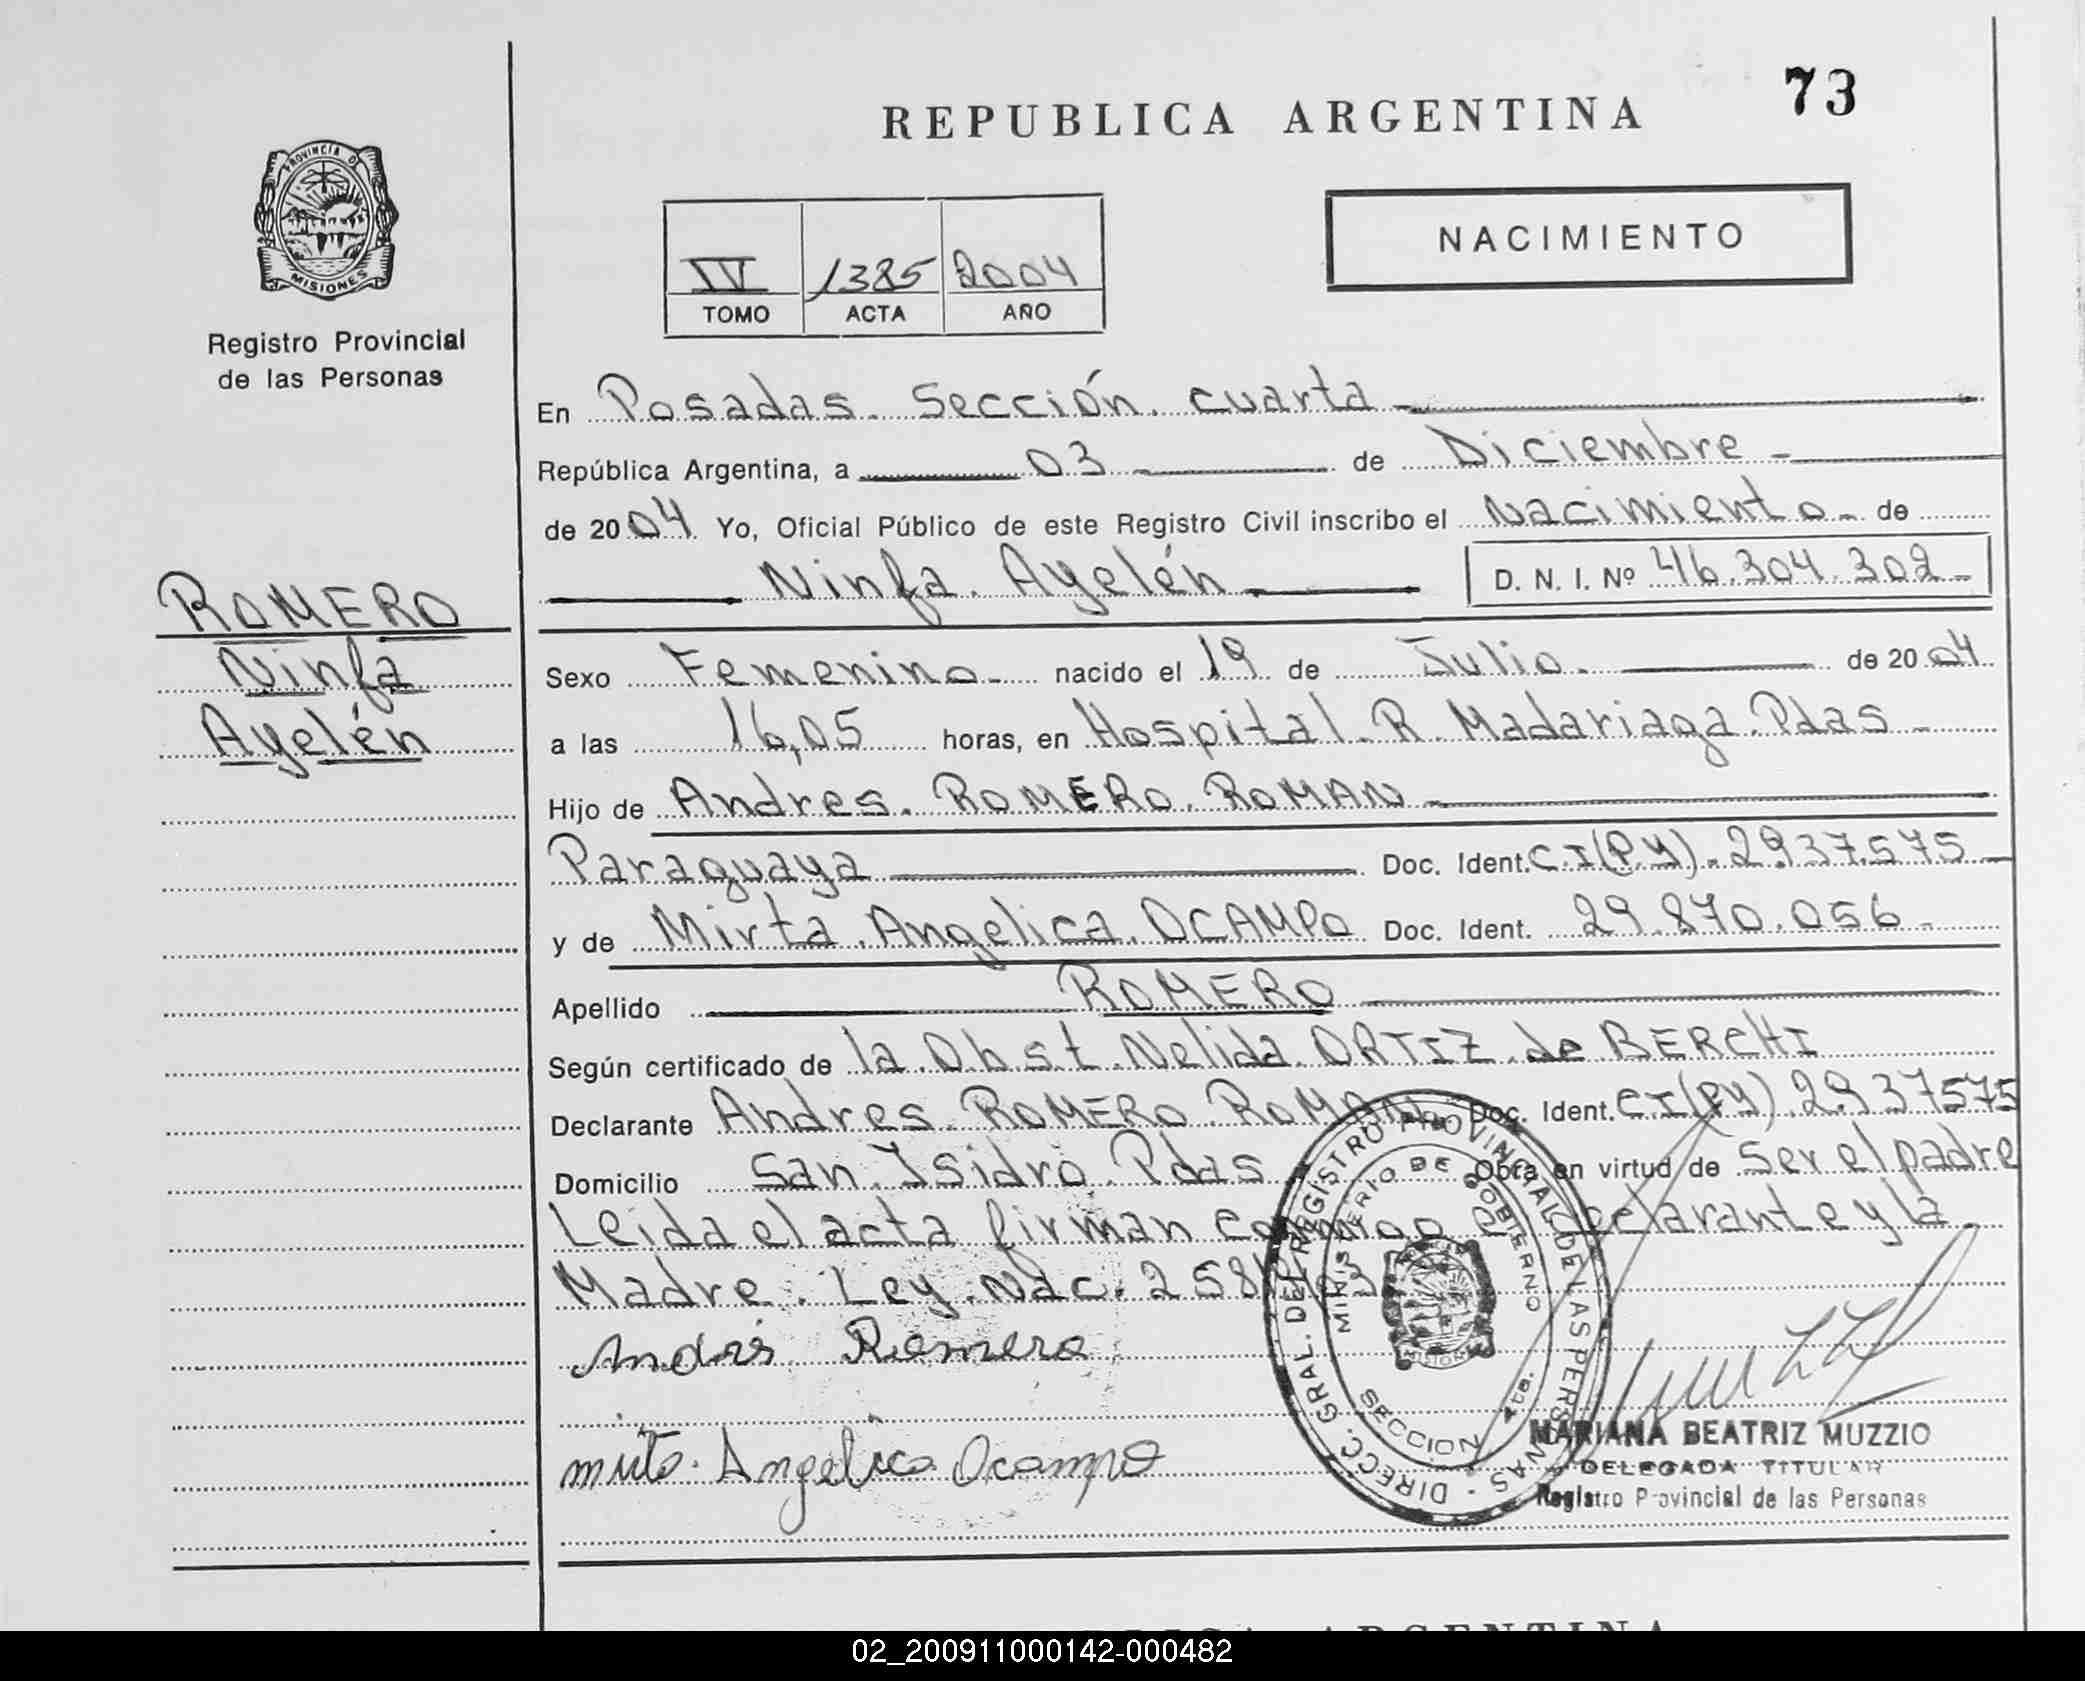 73
REPUBLICA ARGENTINA
PROVINCIA DE
MISIONES
Registro Provincial
de las Personas
NACIMIENTO
IV 1385 2004
TOMO ACTA AÑO
En Posadas Sección cuarta
República Argentina, a 03 de Diciembre
de 2004 Yo, Oficial Público de este Registro Civil inscribo el Nacimiento de
Ninfa Ayelén D. N. I. Nº 46.304.302
ROMERO
Ninfa
Ayelén
Sexo Femenino nacido el 19 de Julio de 2004
a las 16,05 horas, en Hospital R. Madariaga Pdas
Hijo de Andres ROMERO ROMAN
Paraguaya Doc. Ident. C.I(P.Y) 2937575
y de Mirta Angelica OCAMPO Doc. Ident. 29.870.056
Apellido ROMERO
Según certificado de la Obst. Nelida ORTIZ de BERCHI
Declarante Andres ROMERO ROMAN Doc. Ident. CI(PY) 2937575
Domicilio San Isidro Pdas Obra en virtud de Ser el padre
Leida el acta firman conmigo el declarante y la
Madre. Ley. Nac.
Andrés Romero
mirta Angelica Ocampo
DIRECC. GRAL. DEL REGISTRO PROVINCIAL DE LAS PERSONAS
MINISTERIO DE GOBIERNO
MISIONES
SECCION 4ta.
MARIANA BEATRIZ MUZZIO
DELEGADA TITULAR
Registro Provincial de las Personas
REPUBLICA ARGENTINA
02_200911000142-000482